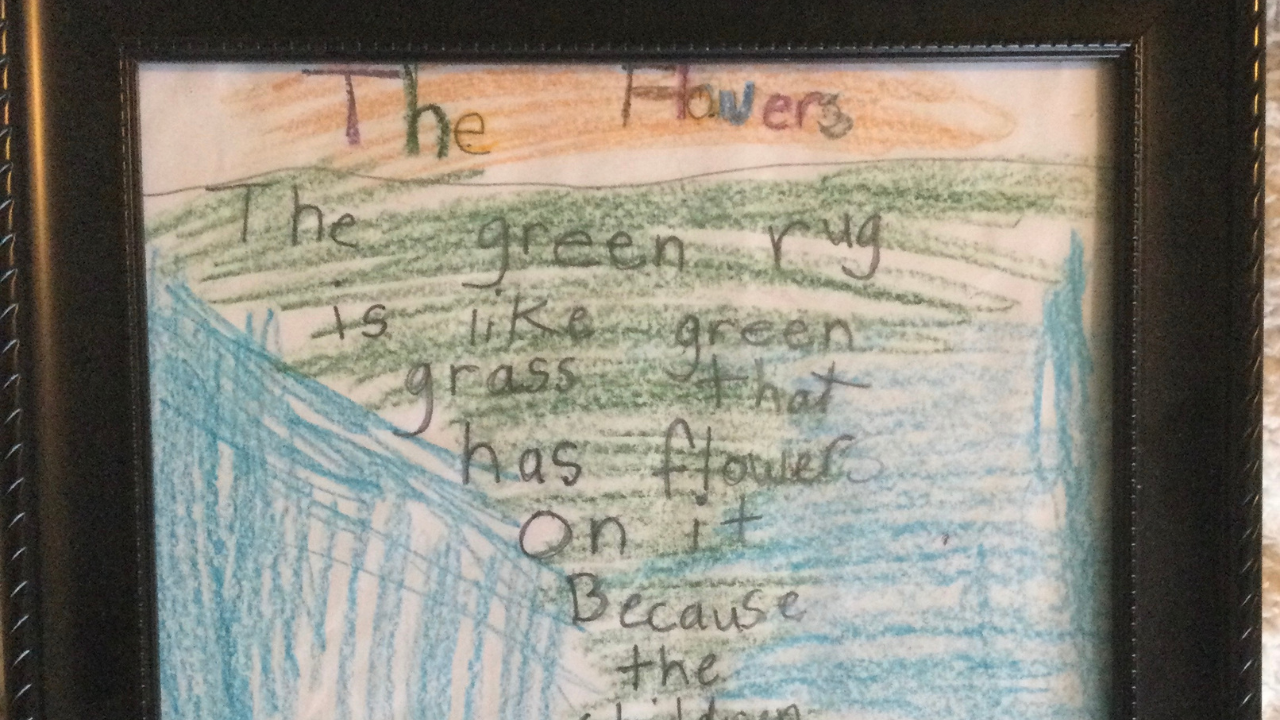 The Flowers
The green rug
is like green
grass that
has flowers
On it
Because
the
children